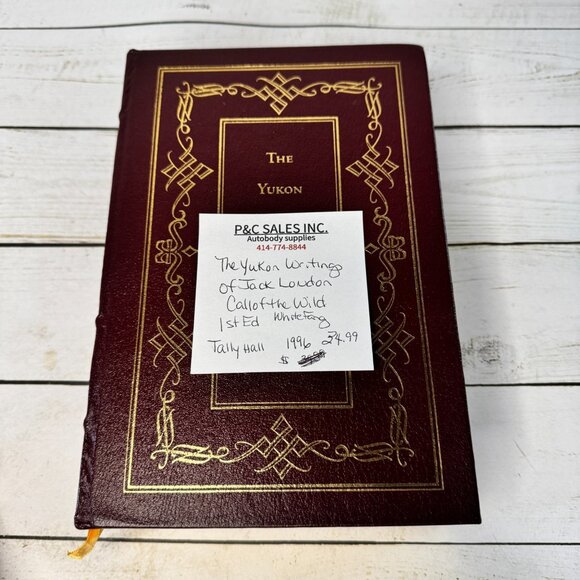 The
Yukon
P&C SALES INC.
Autobody supplies
414-774-8844
The Yukon Writings
of Jack London
Call of the Wild
1st Ed White Fang
Tally Hall 1996 24.99
$